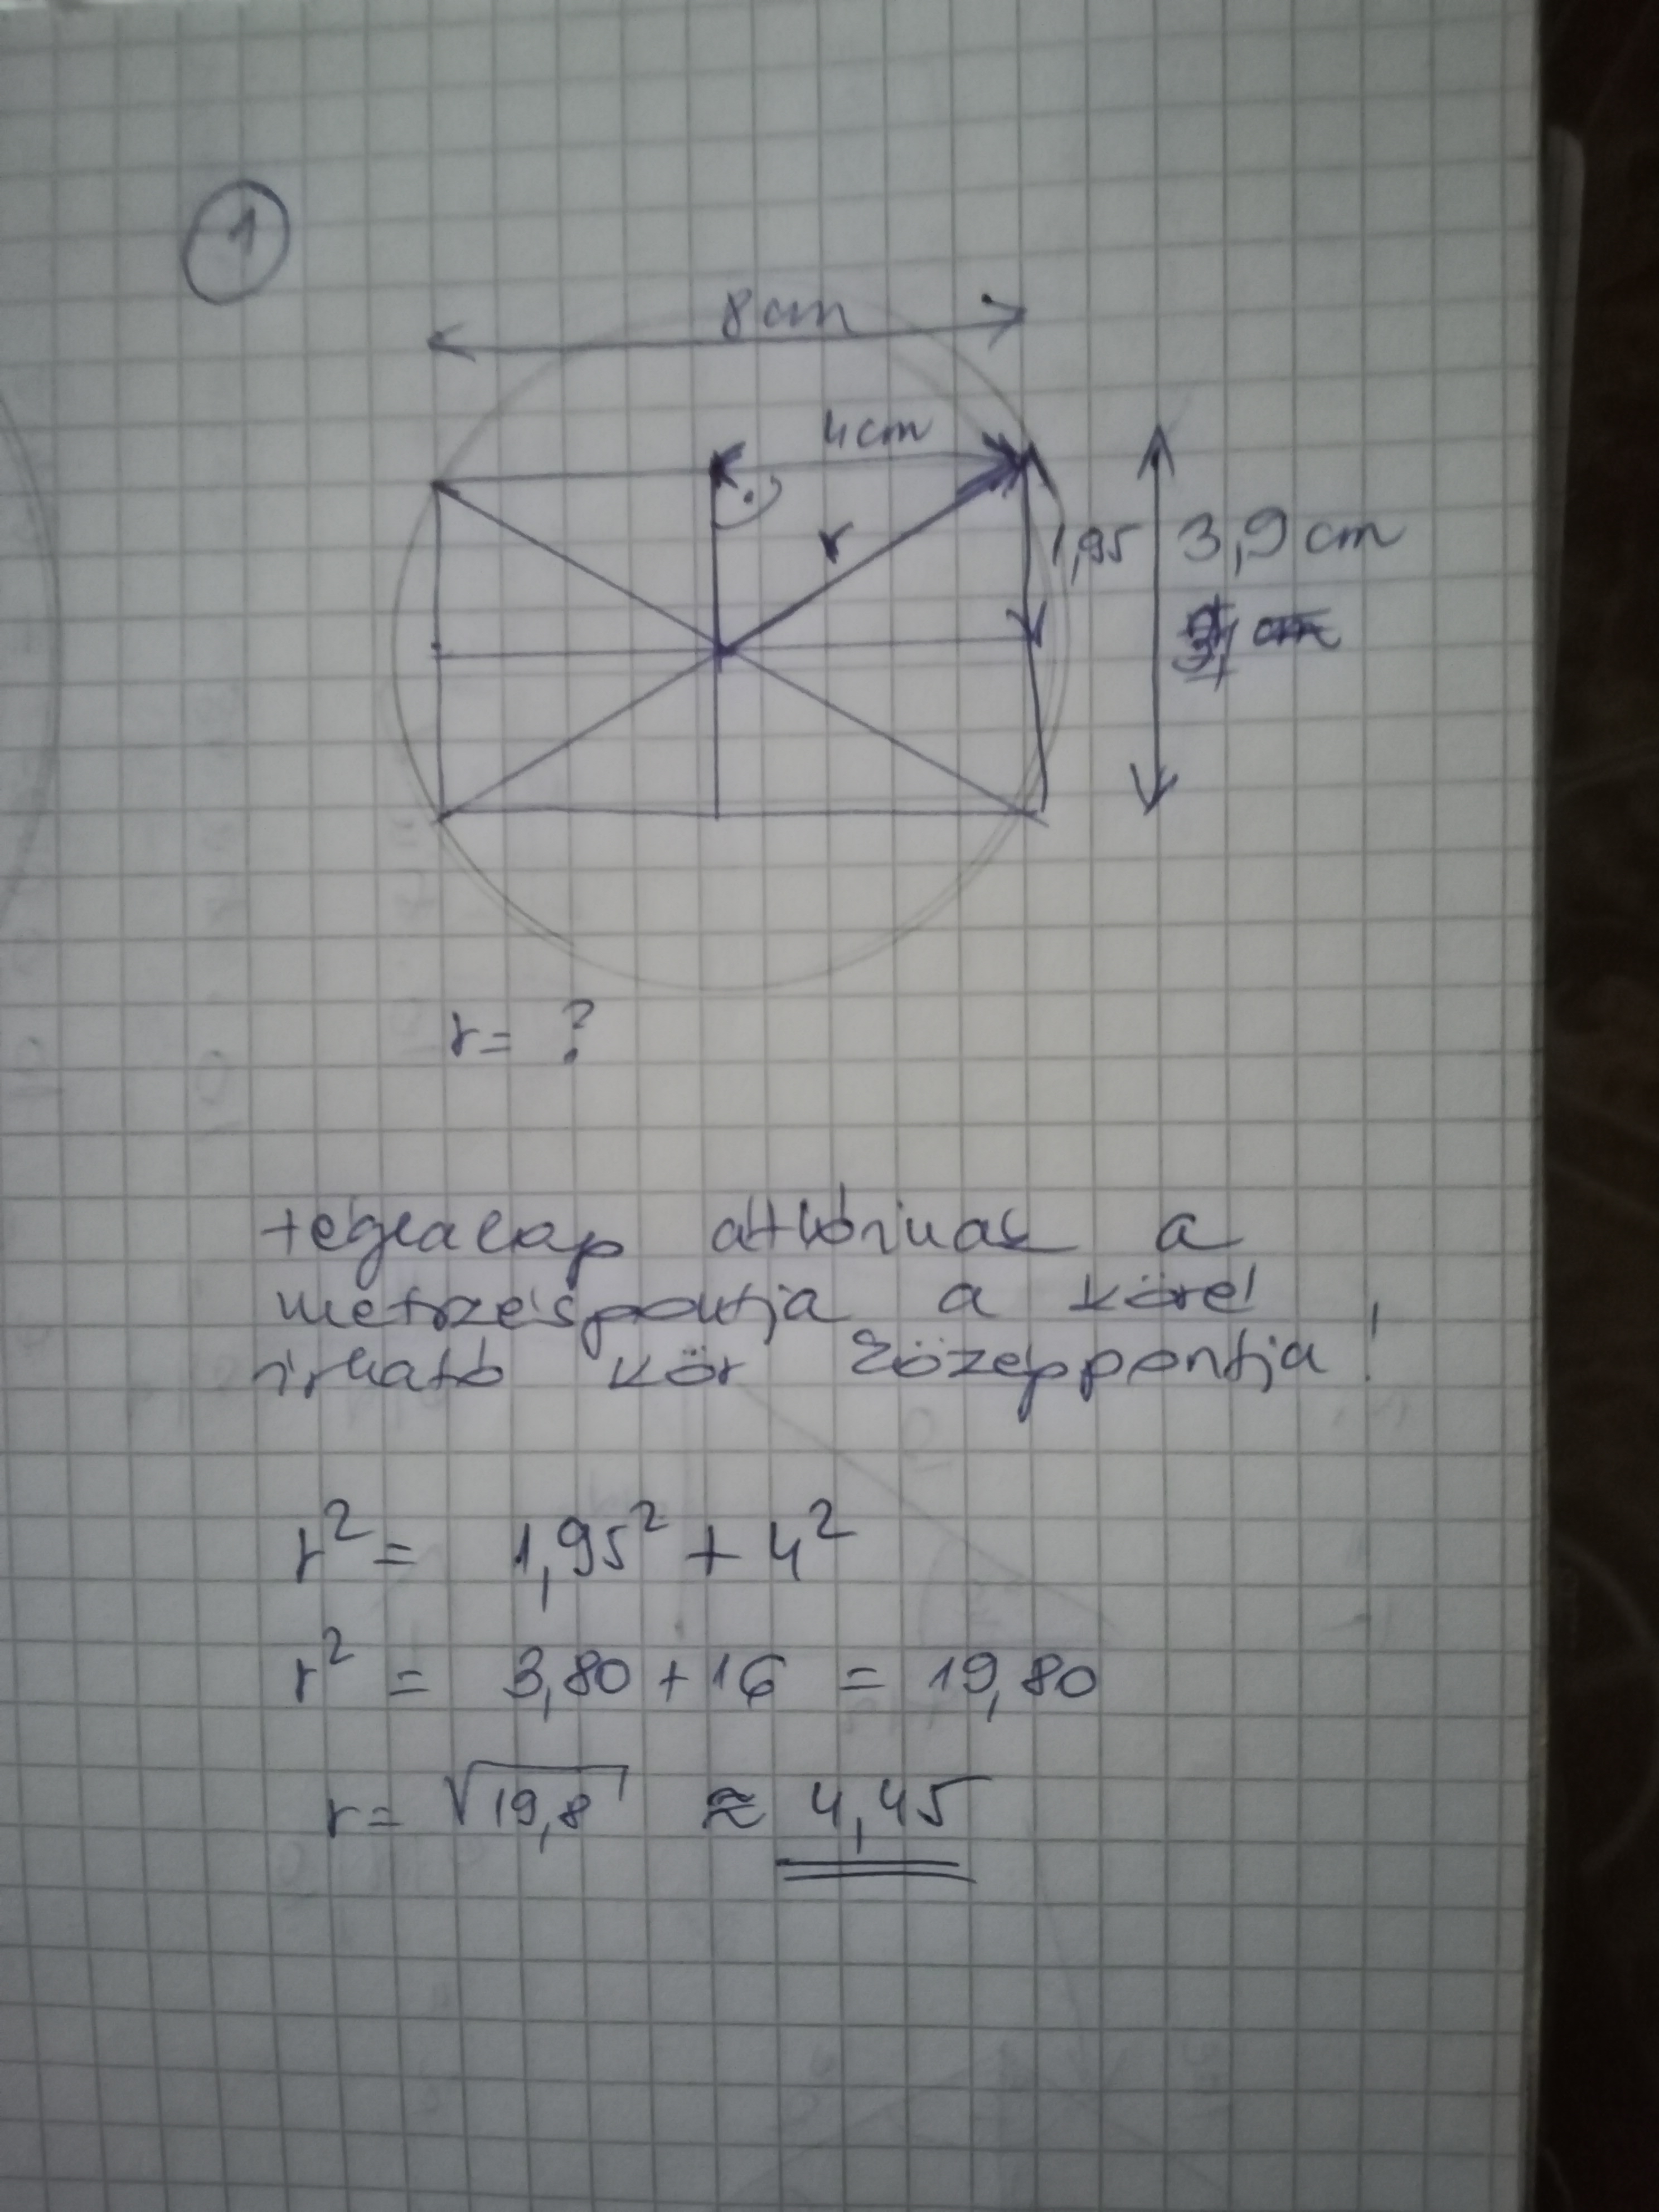 1
8cm
4cm
r
1,95
3,9 cm
r= ?
téglalap átlóinak a
metszéspontja a köré
írható kör középpontja!
r² = 1,95² + 4²
r² = 3,80 + 16 = 19,80
r = √19,8 ≈ 4,45